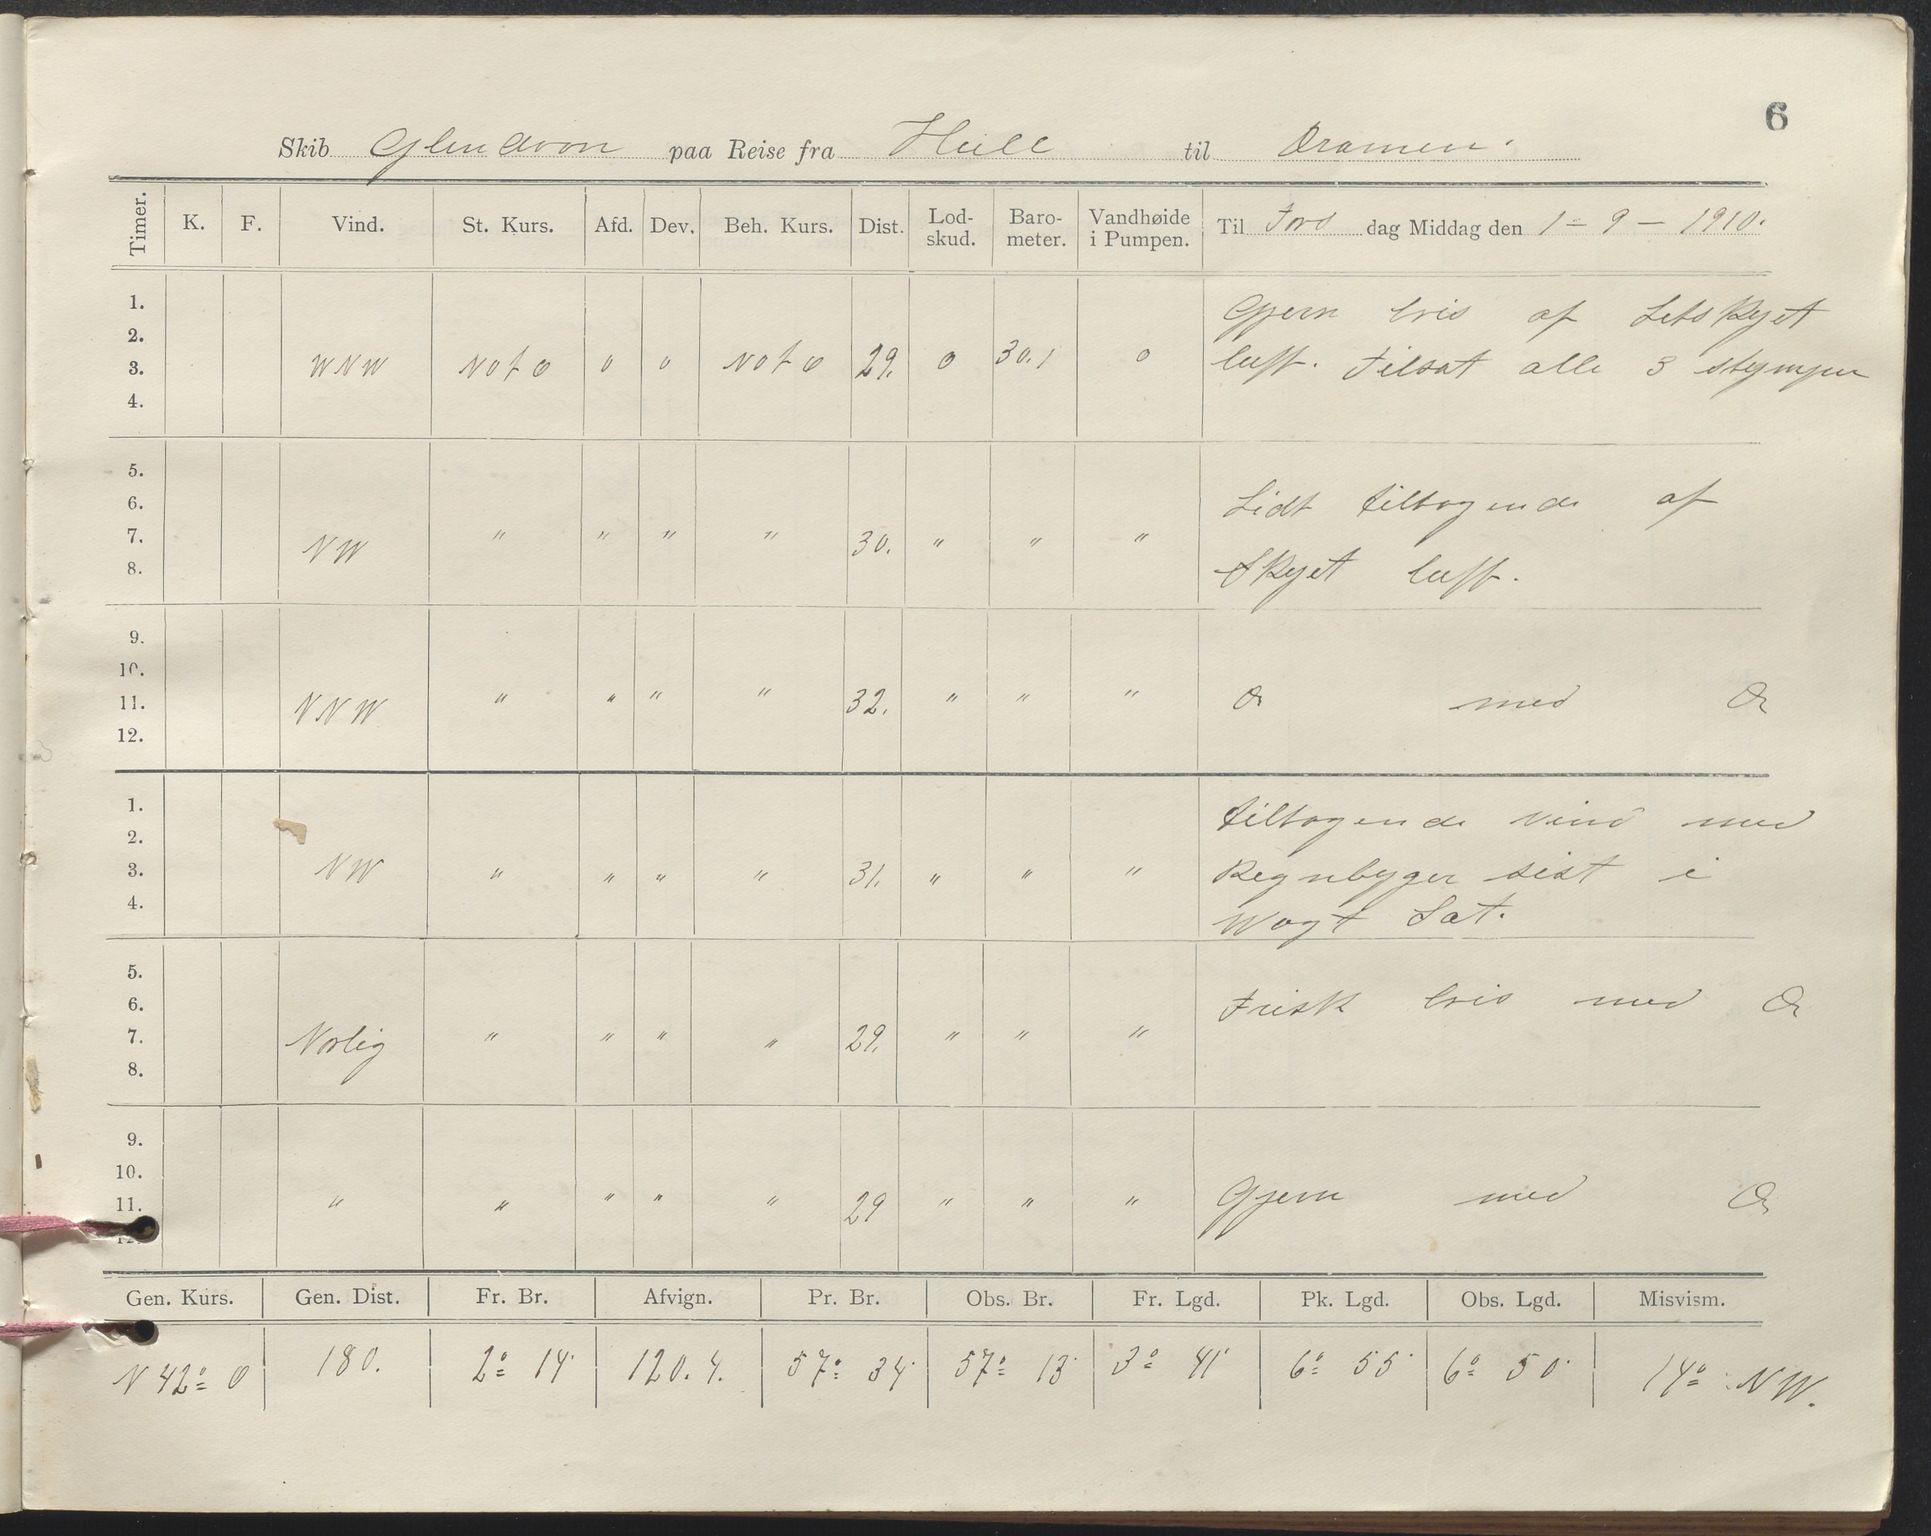 6
Skib Glendoon paa Reise fra Hull til Dramen.
Timer. K. F. Vind. St. Kurs. Afd. Dev. Beh. Kurs. Dist. Lod-skud. Baro-meter. Vandhøide i Pumpen. Til Tors dag Middag den 1 - 9 - 1910.
1. Gjem bris af Letskyet
2.
3. WNW NOtO o o NOtO 29. o 30.1 o luft. Tilsat alle 3
4.
5.
6. Lidt tiltagende af
7. NW " " " " 30. " " "
8. Skyet luft.
9.
10.
11. NNW " " " " 32. " " " Do med Do
12.
1. tiltagende vind med
2.
3. NW " " " " 31. " " " Regnbyger sist i
4. Wagt Sat.
5.
6. Frisk bris med Do
7. Norlig " " " " 29. " " "
8.
9.
10.
11. " " " " " 29 " " " Gjem med Do
12.
Gen. Kurs. Gen. Dist. Fr. Br. Afvign. Pr. Br. Obs. Br. Fr. Lgd. Pk. Lgd. Obs. Lgd. Misvism.
N 42° O 180. 2° 14' 120.4. 57° 34' 57° 13' 3° 41' 6° 55' 6° 50' 14° NW.